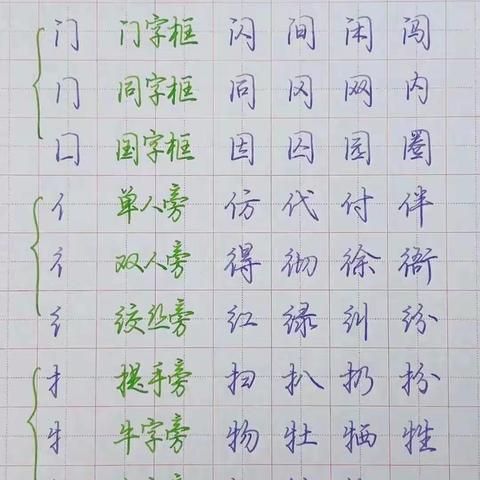 门 门字框 闪 间 闲 闯
冂 同字框 同 冈 网 内
囗 国字框 因 囚 园 圈
亻 单人旁 仿 代 付 伴
彳 双人旁 得 彻 徐 衙
纟 绞丝旁 红 绿 纠 纷
扌 提手旁 扫 扒 扔 扮
牜 牛字旁 物 牡 牺 牲